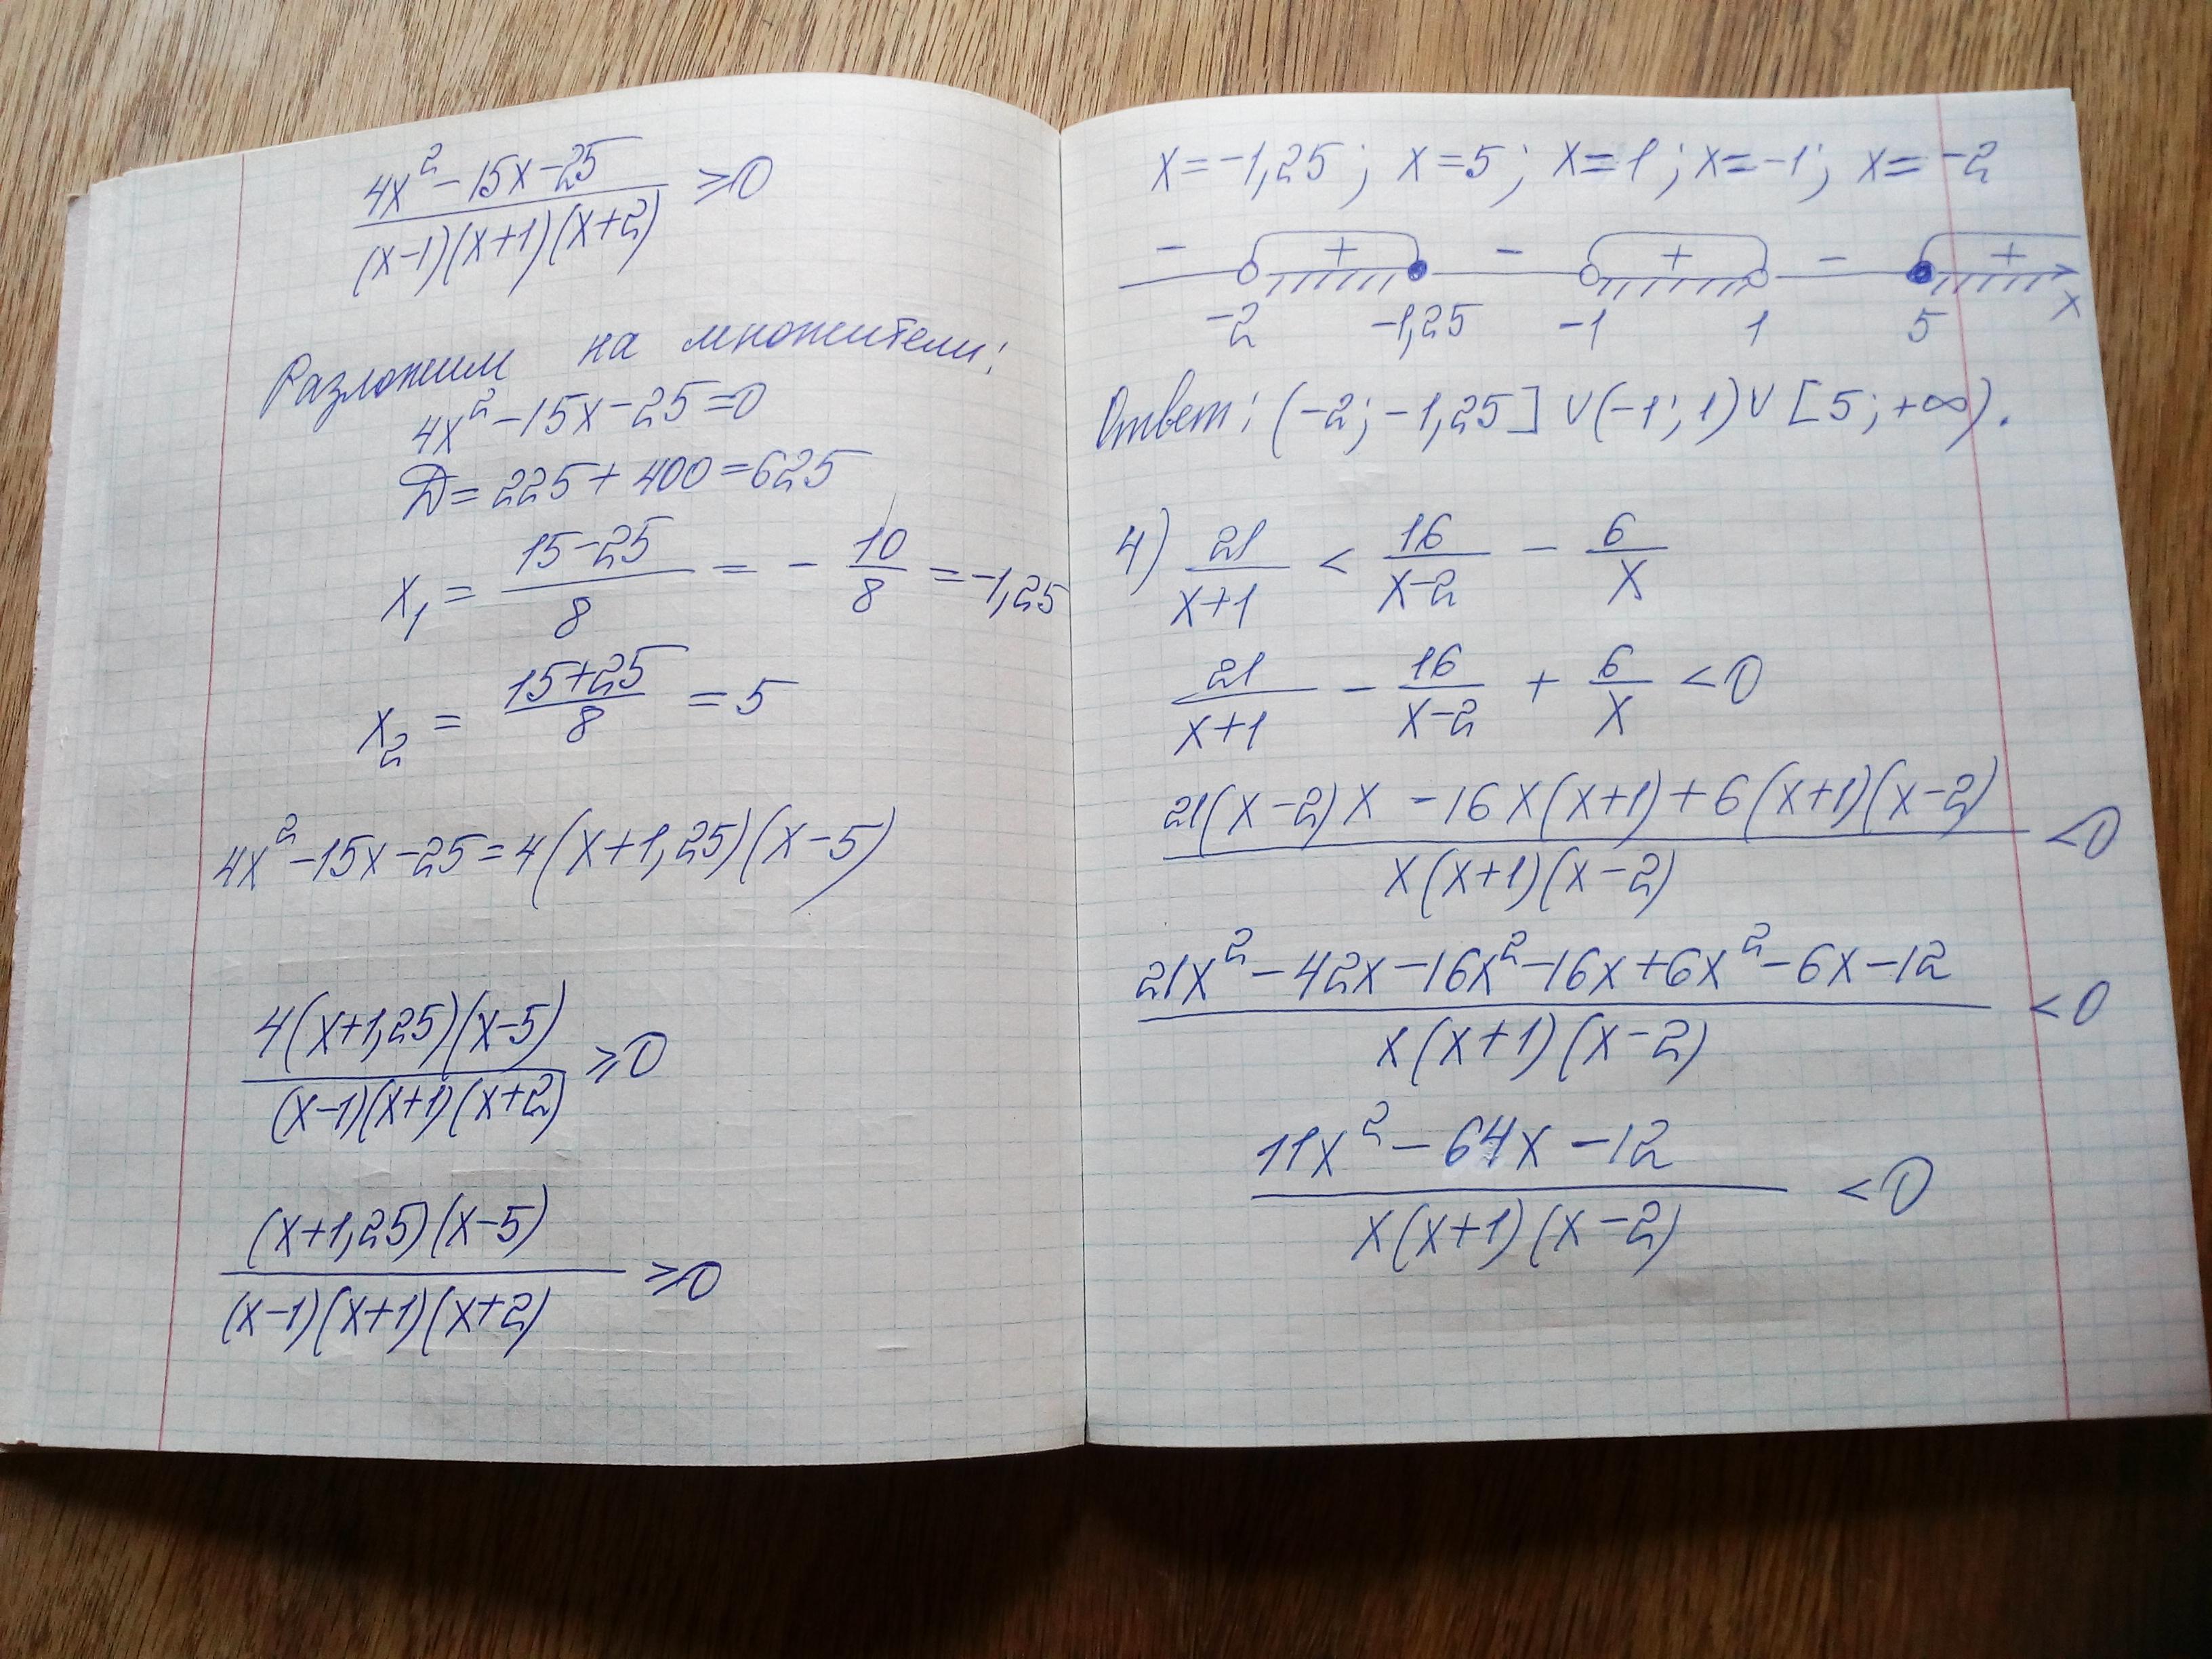 (4x² - 15x - 25)/((x-1)(x+1)(x+2)) ≥ 0
Разложим на множители:
4x² - 15x - 25 = 0
D = 225 + 400 = 625
x₁ = (15-25)/8 = - 10/8 = -1,25
x₂ = (15+25)/8 = 5
4x² - 15x - 25 = 4(x+1,25)(x-5)
(4(x+1,25)(x-5))/((x-1)(x+1)(x+2)) ≥ 0
((x+1,25)(x-5))/((x-1)(x+1)(x+2)) ≥ 0
x = -1,25; x = 5; x = 1; x = -1; x = -2
- + - + - +
-2 -1,25 -1 1 5 x
Ответ: (-2; -1,25] ∪ (-1; 1) ∪ [5; +∞).
4) 21/(x+1) < 16/(x-2) - 6/x
21/(x+1) - 16/(x-2) + 6/x < 0
(21(x-2)x - 16x(x+1) + 6(x+1)(x-2))/(x(x+1)(x-2)) < 0
(21x² - 42x - 16x² - 16x + 6x² - 6x - 12)/(x(x+1)(x-2)) < 0
(11x² - 64x - 12)/(x(x+1)(x-2)) < 0